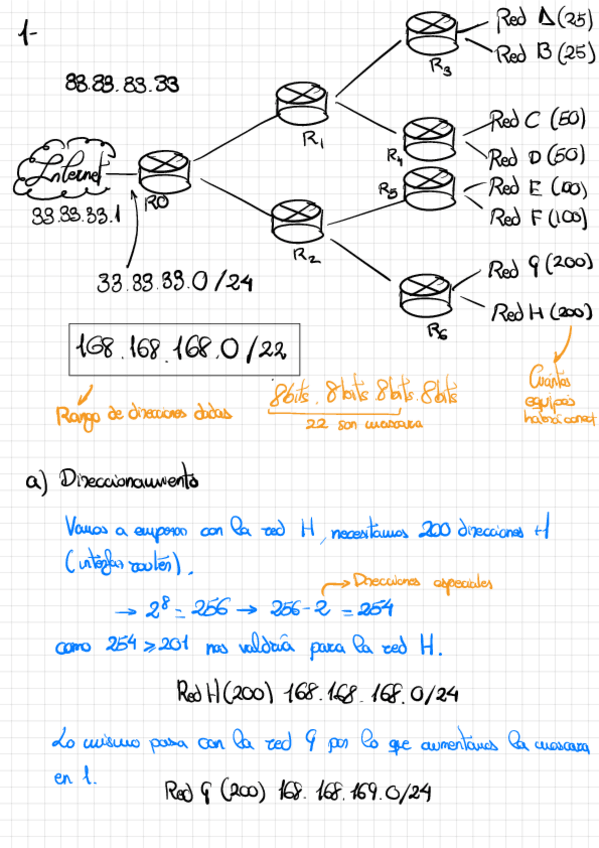 1-
Red A (25)
Red B (25)
R3
33.33.33.33
R1
Red C (50)
R4
Red D (50)
Internet
R5
Red E (100)
33.33.33.1
R0
Red F (100)
R2
Red G (200)
33.33.33.0/24
Red H (200)
R6
168.168.168.0/22
Rango de direcciones dadas
8bits. 8bits 8bits. 8bits
22 son mascara
Cuántos
equipos
habrá conect
a) Direccionamiento
Vamos a empezar con la red H, necesitamos 200 direcciones +1
(interfaz router).
→ Direcciones especiales
→ 2⁸ = 256 → 256-2 = 254
como 254 ≥ 201 nos valdría para la red H.
Red H (200) 168.168.168.0/24
Lo mismo pasa con la red G por lo que aumentamos la mascara
en 1.
Red G (200) 168.168.169.0/24